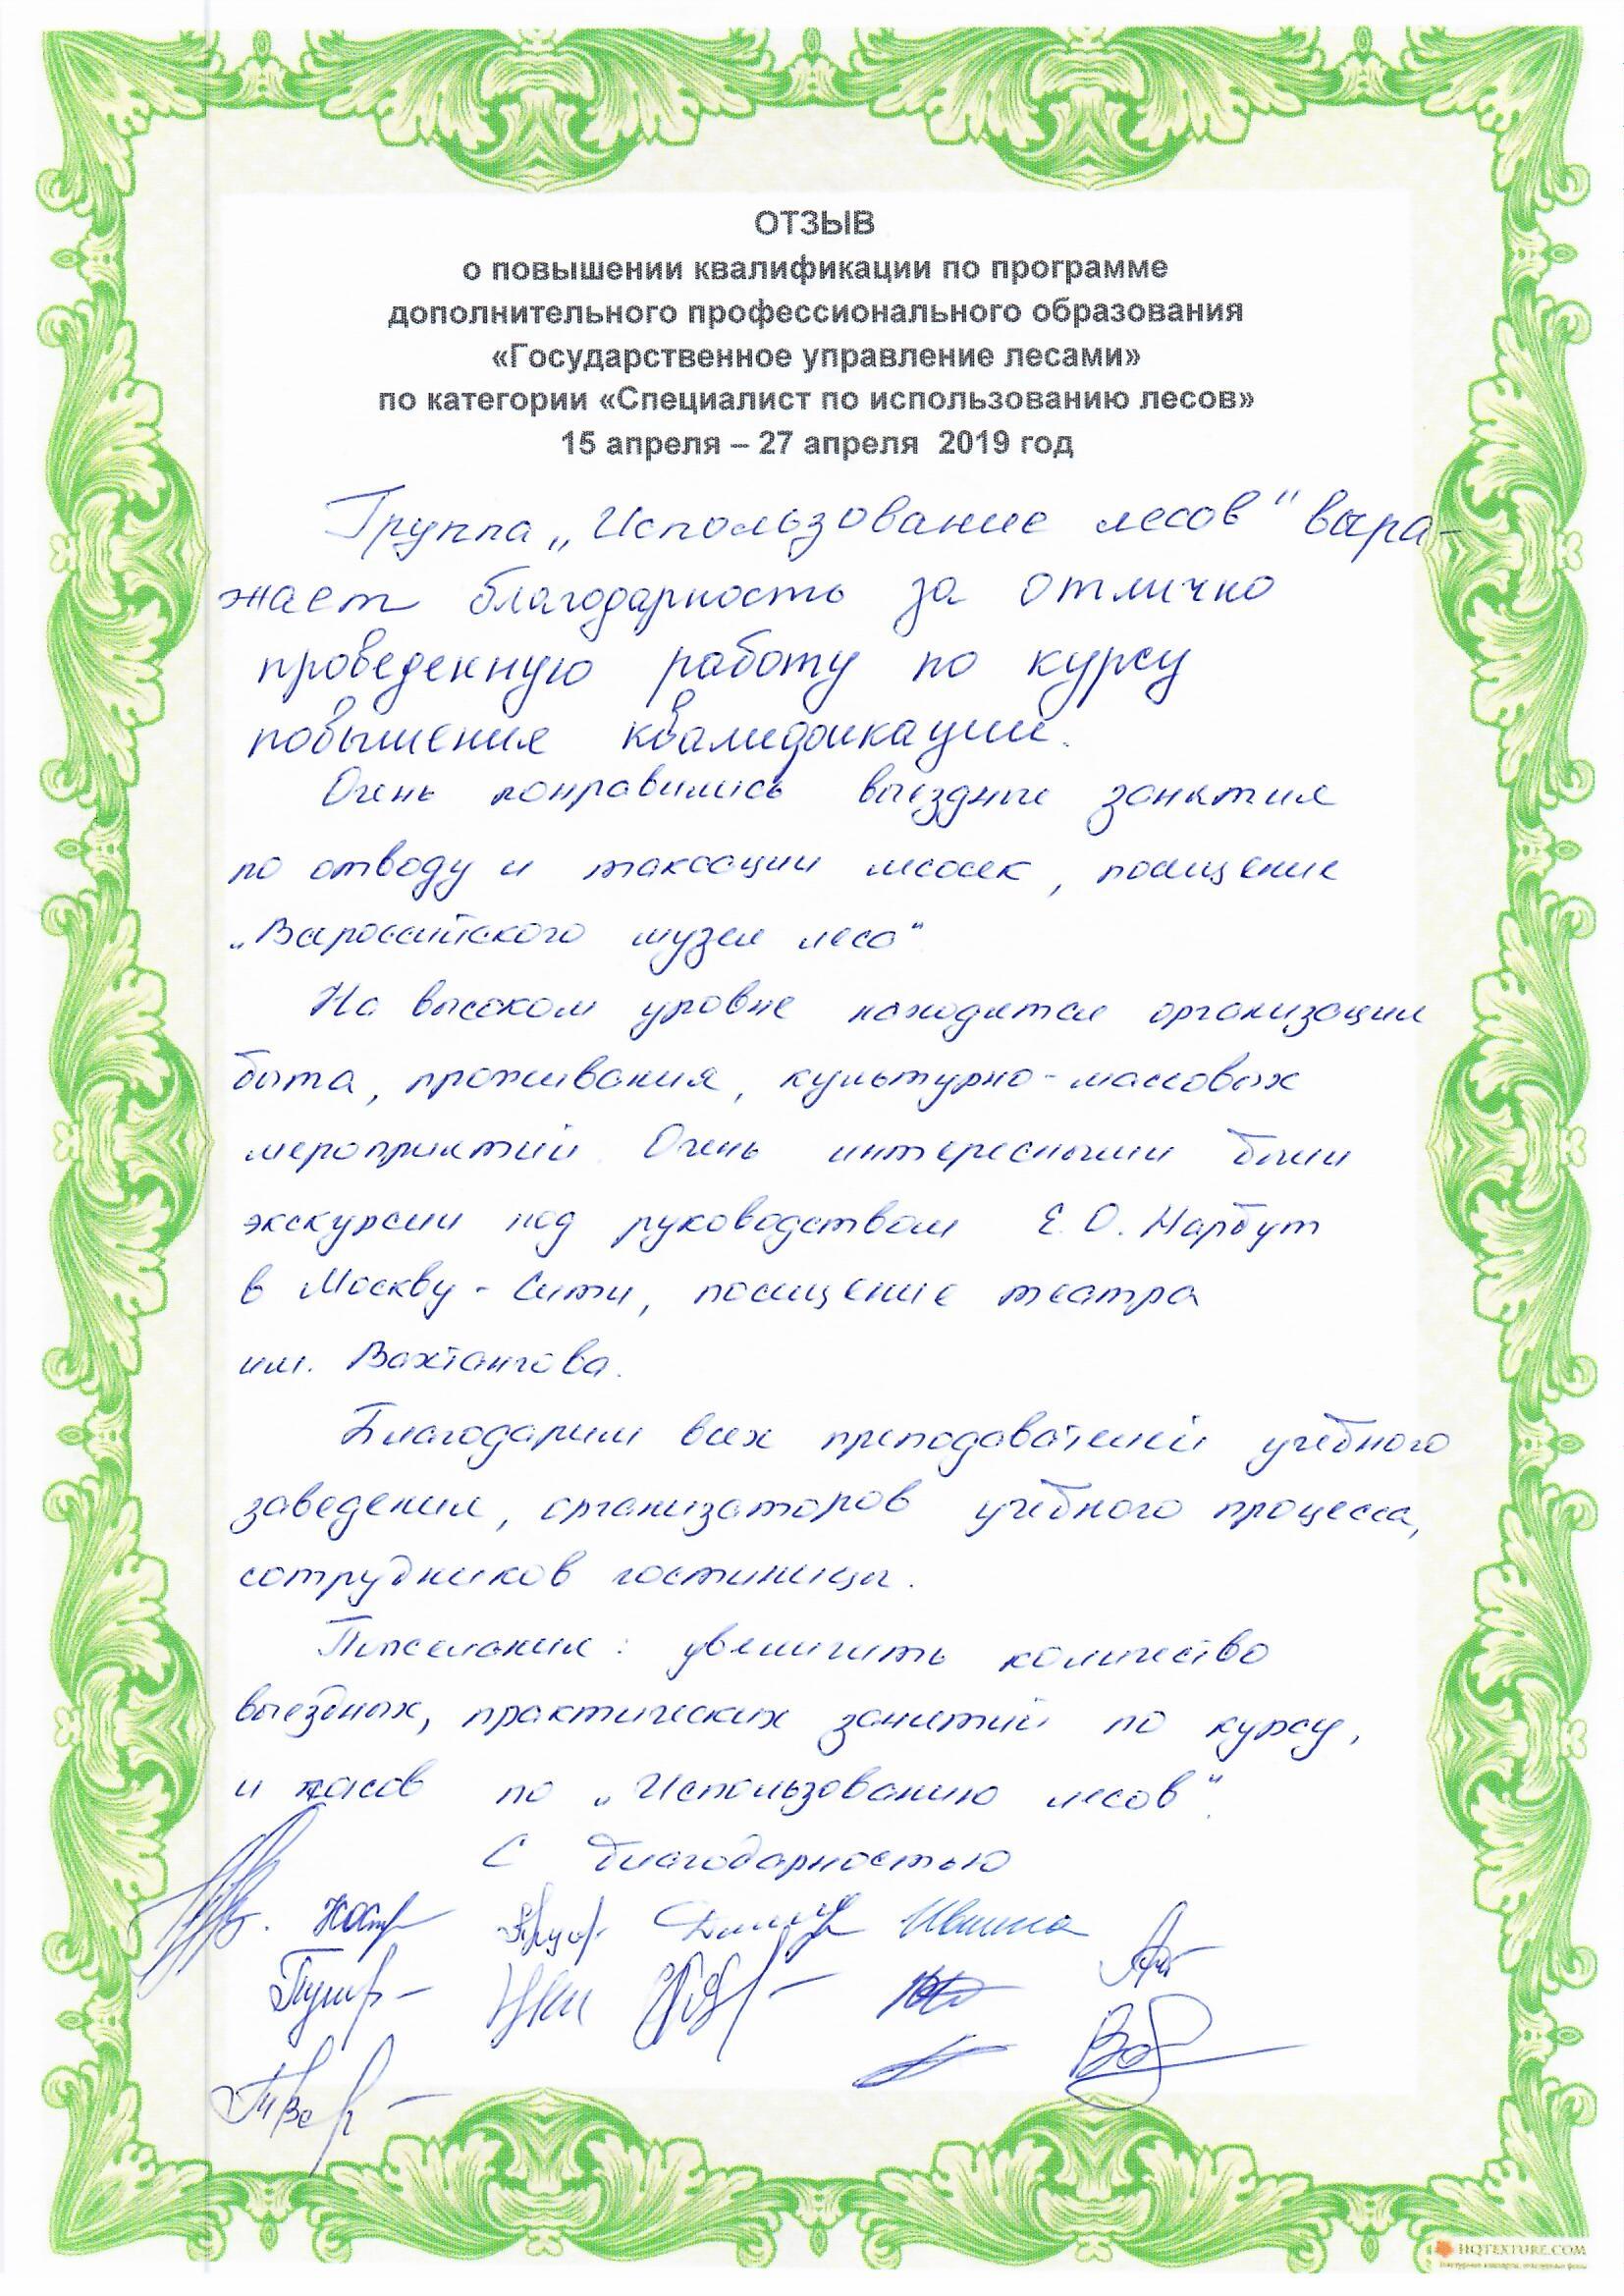 ОТЗЫВ
о повышении квалификации по программе
дополнительного профессионального образования
«Государственное управление лесами»
по категории «Специалист по использованию лесов»
15 апреля – 27 апреля 2019 год
Группа „Использование лесов" выра-
жает благодарность за отлично
проведенную работу по курсу
повышения квалификации.
Очень понравились выездные занятия
по отводу и таксации лесосек, посещение
„Всероссийского музея леса"
На высоком уровне находятся организации
быта, проживания, культурно-массовых
мероприятий. Очень интересными были
экскурсии под руководством Е.О. Нарбут
в Москву-Сити, посещение театра
им. Вахтангова.
Благодарим всех преподавателей учебного
заведения, организаторов учебного процесса,
сотрудников гостиницы.
Пожелания: увеличить количество
выездных, практических занятий по курсу,
и часов по „Использованию лесов".
С благодарностью
HQTEXTURE.COM